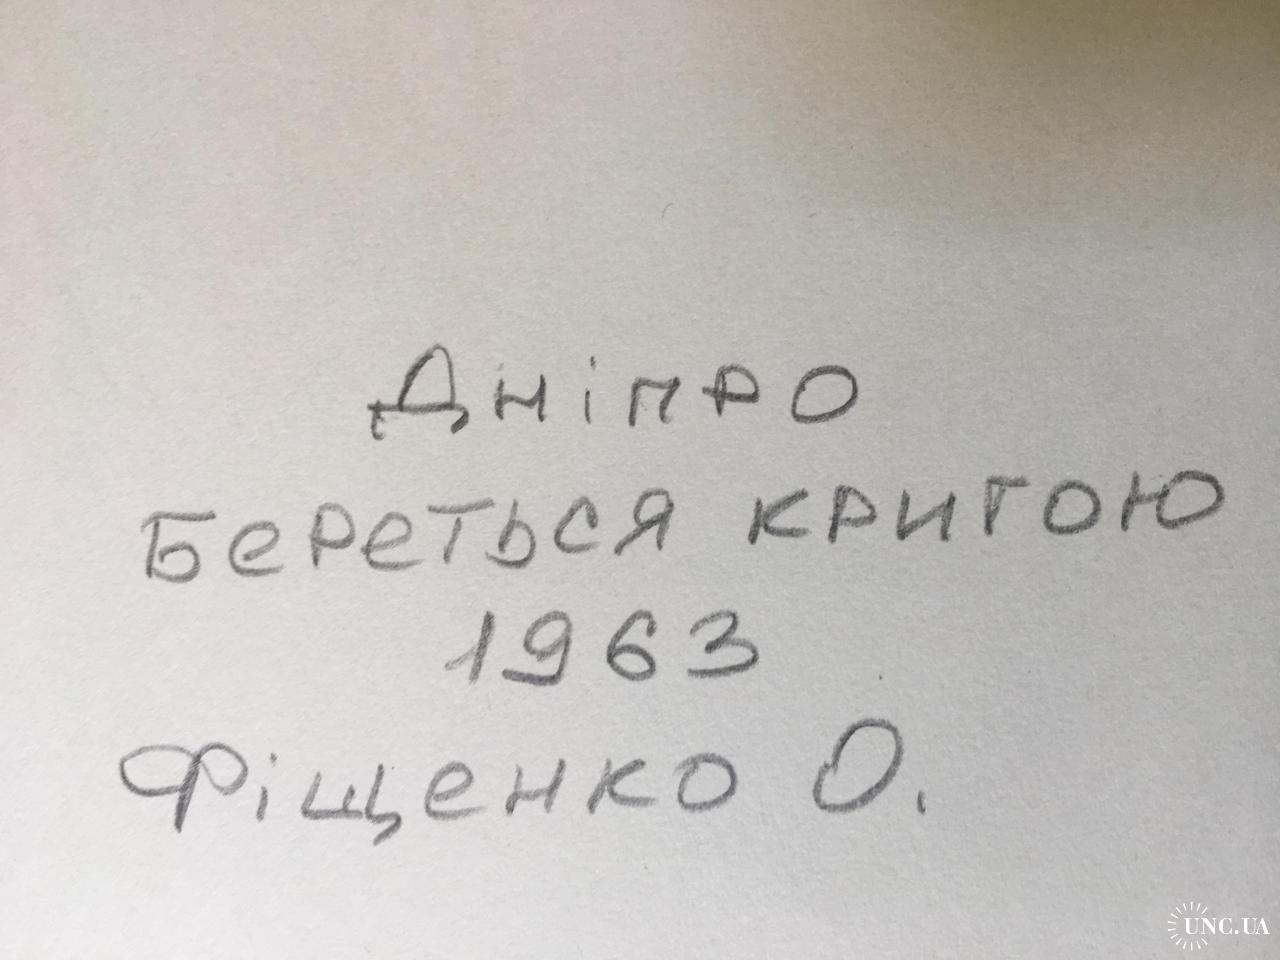 Дніпро
Береться кригою
1963
Фіщенко О.
UNC.UA